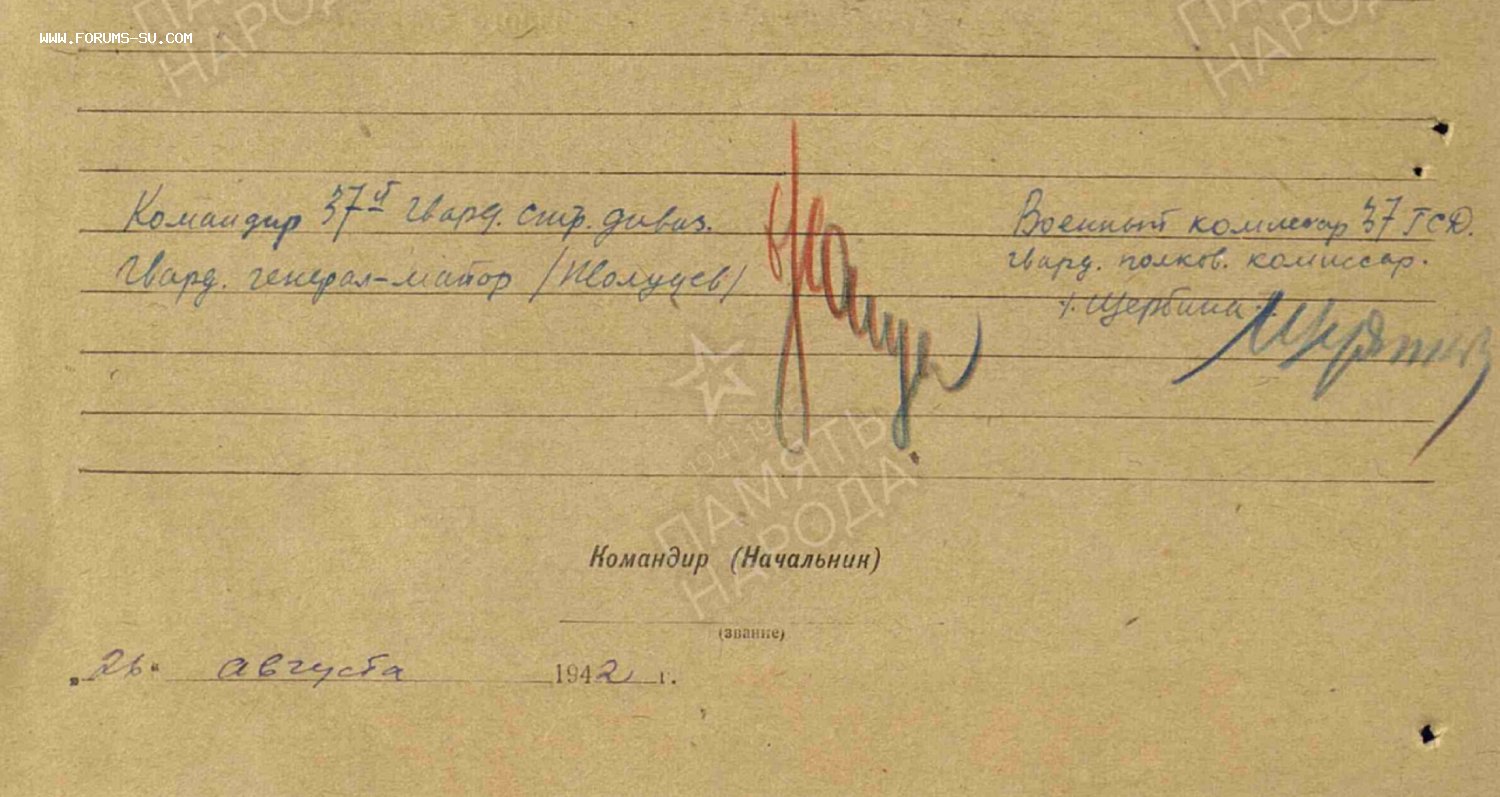 WWW.FORUMS-SU.COM
ПАМЯТЬ
НАРОДА
ПАМЯТЬ
НАРОДА
Командир 37й Гвард. стр. дивиз.
Гвард. генерал-майор /Жолудев/
Военный комиссар 37 ГСД.
гвард. полков. комиссар.
/. Щербина ./
ПАМЯТЬ
НАРОДА
Командир (Начальник)
(звание)
„26“ августа 1942 г.